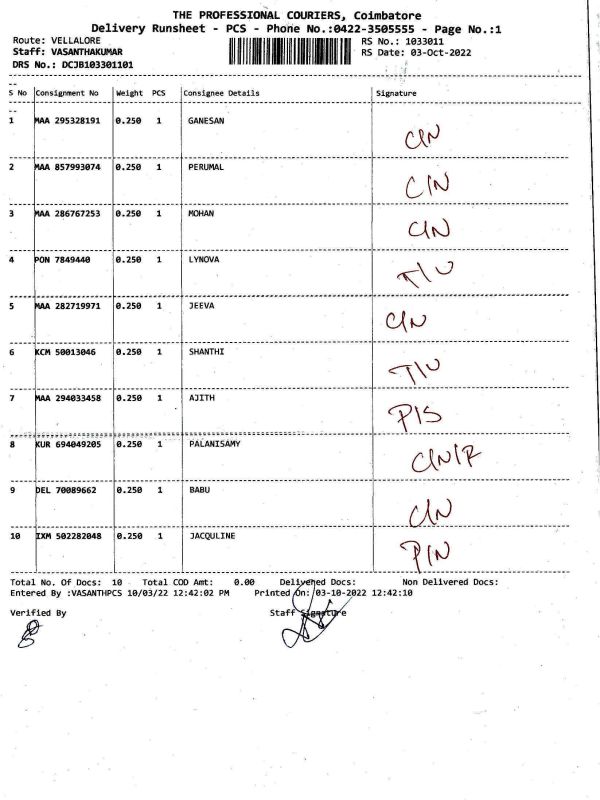 THE PROFESSIONAL COURIERS, Coimbatore
Delivery Runsheet - PCS - Phone No.:0422-3505555 - Page No.:1
Route: VELLALORE RS No.: 1033011
Staff: VASANTHAKUMAR RS Date: 03-Oct-2022
DRS No.: DCJB103301101
S No Consignment No Weight PCS Consignee Details Signature
1 MAA 295328191 0.250 1 GANESAN C/N
2 MAA 857993074 0.250 1 PERUMAL C/N
3 MAA 286767253 0.250 1 MOHAN C/N
4 PON 7849440 0.250 1 LYNOVA T/U
5 MAA 282719971 0.250 1 JEEVA C/N
6 KCM 50013046 0.250 1 SHANTHI T/U
7 MAA 294033458 0.250 1 AJITH P/S
8 KUR 694049205 0.250 1 PALANISAMY C/N/R
9 DEL 70089662 0.250 1 BABU C/N
10 IXM 502282048 0.250 1 JACQULINE P/N
Total No. Of Docs: 10 Total COD Amt: 0.00 Delivered Docs: Non Delivered Docs:
Entered By :VASANTHPCS 10/03/22 12:42:02 PM Printed On: 03-10-2022 12:42:10
Verified By Staff Signature